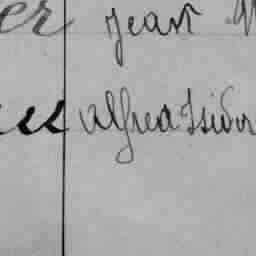 er Jean
Alfred Isidor